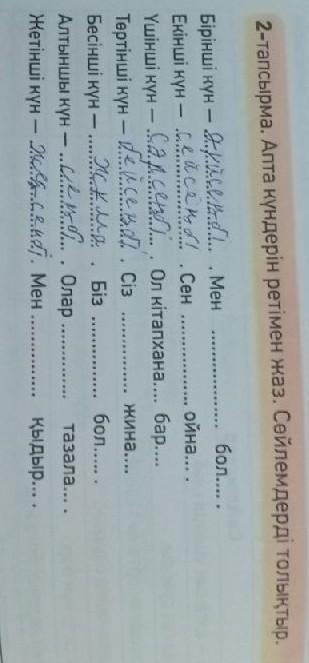 2-тапсырма. Апта күндерін ретімен жаз. Сөйлемдерді толықтыр.
Бірінші күн – дүйсенбі. Мен .................. бол..... .
Екінші күн – сейсенбі. Сен .................. ойна... .
Үшінші күн – Сәрсенбі. Ол кітапхана.... бар....
Төртінші күн – бейсенбі. Сіз ............. жина....
Бесінші күн – ... жұма. Біз ............. бол..... .
Алтыншы күн – ..сенбі... . Олар ............. тазала... .
Жетінші күн – жексенбі. Мен .............. қыдыр... .